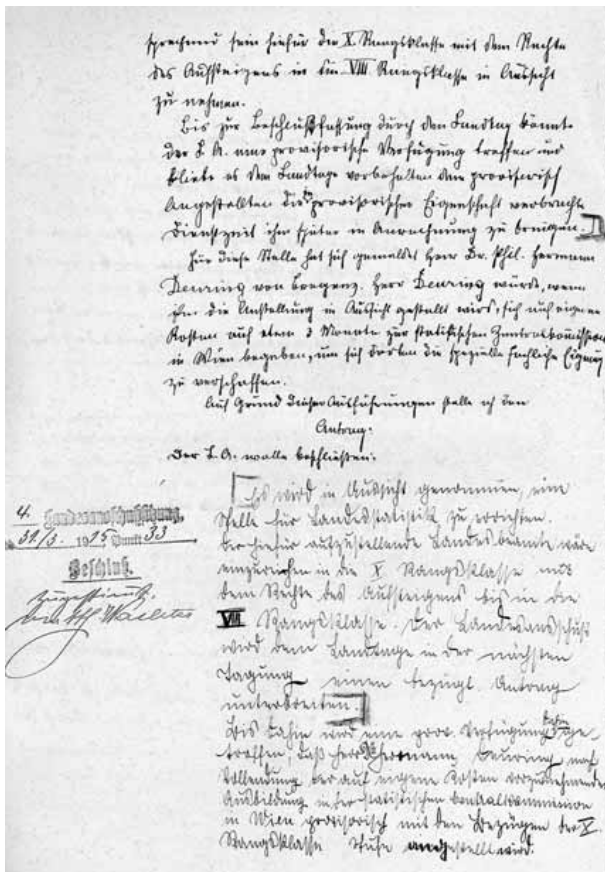 sprechend sein hiefür die X. Rangsklasse mit dem Rechte
des Aufsteigens in die VIII. Rangsklasse in Aussicht
zu nehmen.
Bis zur Beschlußfassung durch den Landtag könnte
der L. A. eine provisorische Verfügung treffen und
bliebe es dem Landtage vorbehalten dem provisorisch
Angestellten die provisorischer Eigenschaft verbrachte
Dienstzeit ihm später in Anrechnung zu bringen.
Für diese Stelle hat sich gemeldet Herr Dr. Phil. Hermann
Deuring von Bregenz. Herr Deuring würde, wenn
ihm die Anstellung in Aussicht gestellt wird, sich auf eigene
Kosten auf etwa 3 Monate zur statistischen Zentralkommission
in Wien begeben, um sich dorten die spezielle fachliche Eignung
zu verschaffen.
Auf Grund dieser Ausführungen stelle ich den
Antrag:
Der L. A. wolle beschließen:
Es wird in Aussicht genommen, eine
Stelle für Landesstatistik zu errichten.
Der hiefür aufzustellende Landesbeamte wäre
einzureihen in die X Rangsklasse mit
dem Rechte des Aufsteigens bis in die
VIII Rangsklasse. Der Landesausschuß
wird dem Landtage in der nächsten
Tagung einen bezügl. Antrag
unterbreiten.
4. Landesausschußsitzung,
31./3. 1915 Punkt 33
Beschluß.
zugestimmt.
Bis dahin wird eine prov. Verfügung dahin ge-
troffen, daß Herr Dr. Hermann Deuring nach
Vollendung der auf eigene Kosten vorzunehmenden
Ausbildung in der statistischen Centralkommission
in Wien provisorisch mit den Bezügen der X.
Rangsklasse Stufe angestellt wird.